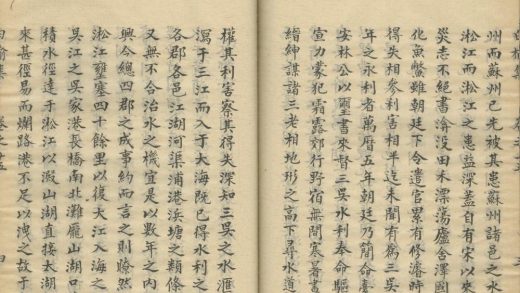 州而蘇州已先被其患蘇州諸邑之水
淞江而淞江之患益深蓋自有宋以來
災志不絕書渰没田禾漂蕩廬舍澤國
化魚鱉雖朝廷下令遣官累有修濬時
得失相參利害相半迄未聞有為三吳
年之永利者萬曆五年朝廷乃簡命臺
安林公以璽書來督三吳水利奉命驅
宣力蒙犯霜露郊行野宿無間寒暑書
縉紳謀諸三老相地形之高下尋水道
權其利害察其得失深知三吳之水滙
瀉于三江而入于大海既已得水利之
各郡各邑江湖河渠浦港浜塘之類條
又無不合治水之機宜是以數年之内
興今總四郡之成事約而言之則瞭然
淞江壅塞四十餘里以復大江入海之
吳江之吳家港長橋南北灘龐山湖口
積水徑達于淞江以澱山湖直接太湖
來甚徑易而爛路港不足以洩之故于